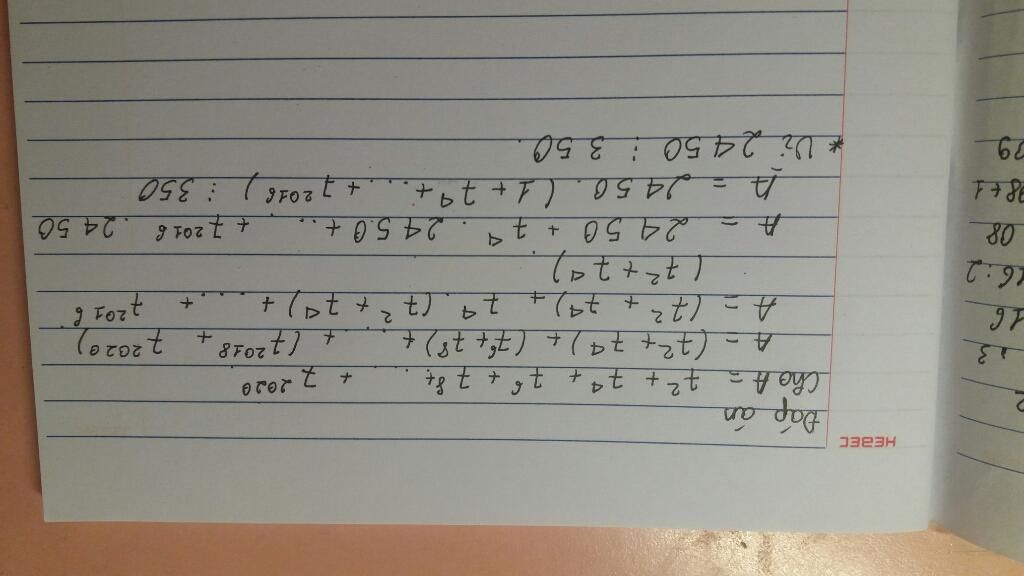 HEBEC
Đáp án
Cho A = 7² + 7⁴ + 7⁶ + 7⁸ + ... + 7²⁰²⁰
A = (7² + 7⁴) + (7⁶ + 7⁸) + ... + (7²⁰¹⁸ + 7²⁰²⁰)
A = (7² + 7⁴) + 7⁴. (7² + 7⁴) + ... + 7²⁰¹⁶
(7² + 7⁴)
A = 2450 + 7⁴. 2450 + ... + 7²⁰¹⁶. 2450
A = 2450. (1 + 7⁴ + ... + 7²⁰¹⁶) ⋮ 350
* Vì 2450 ⋮ 350.
2
.3
16
16:2
08
08+1
09